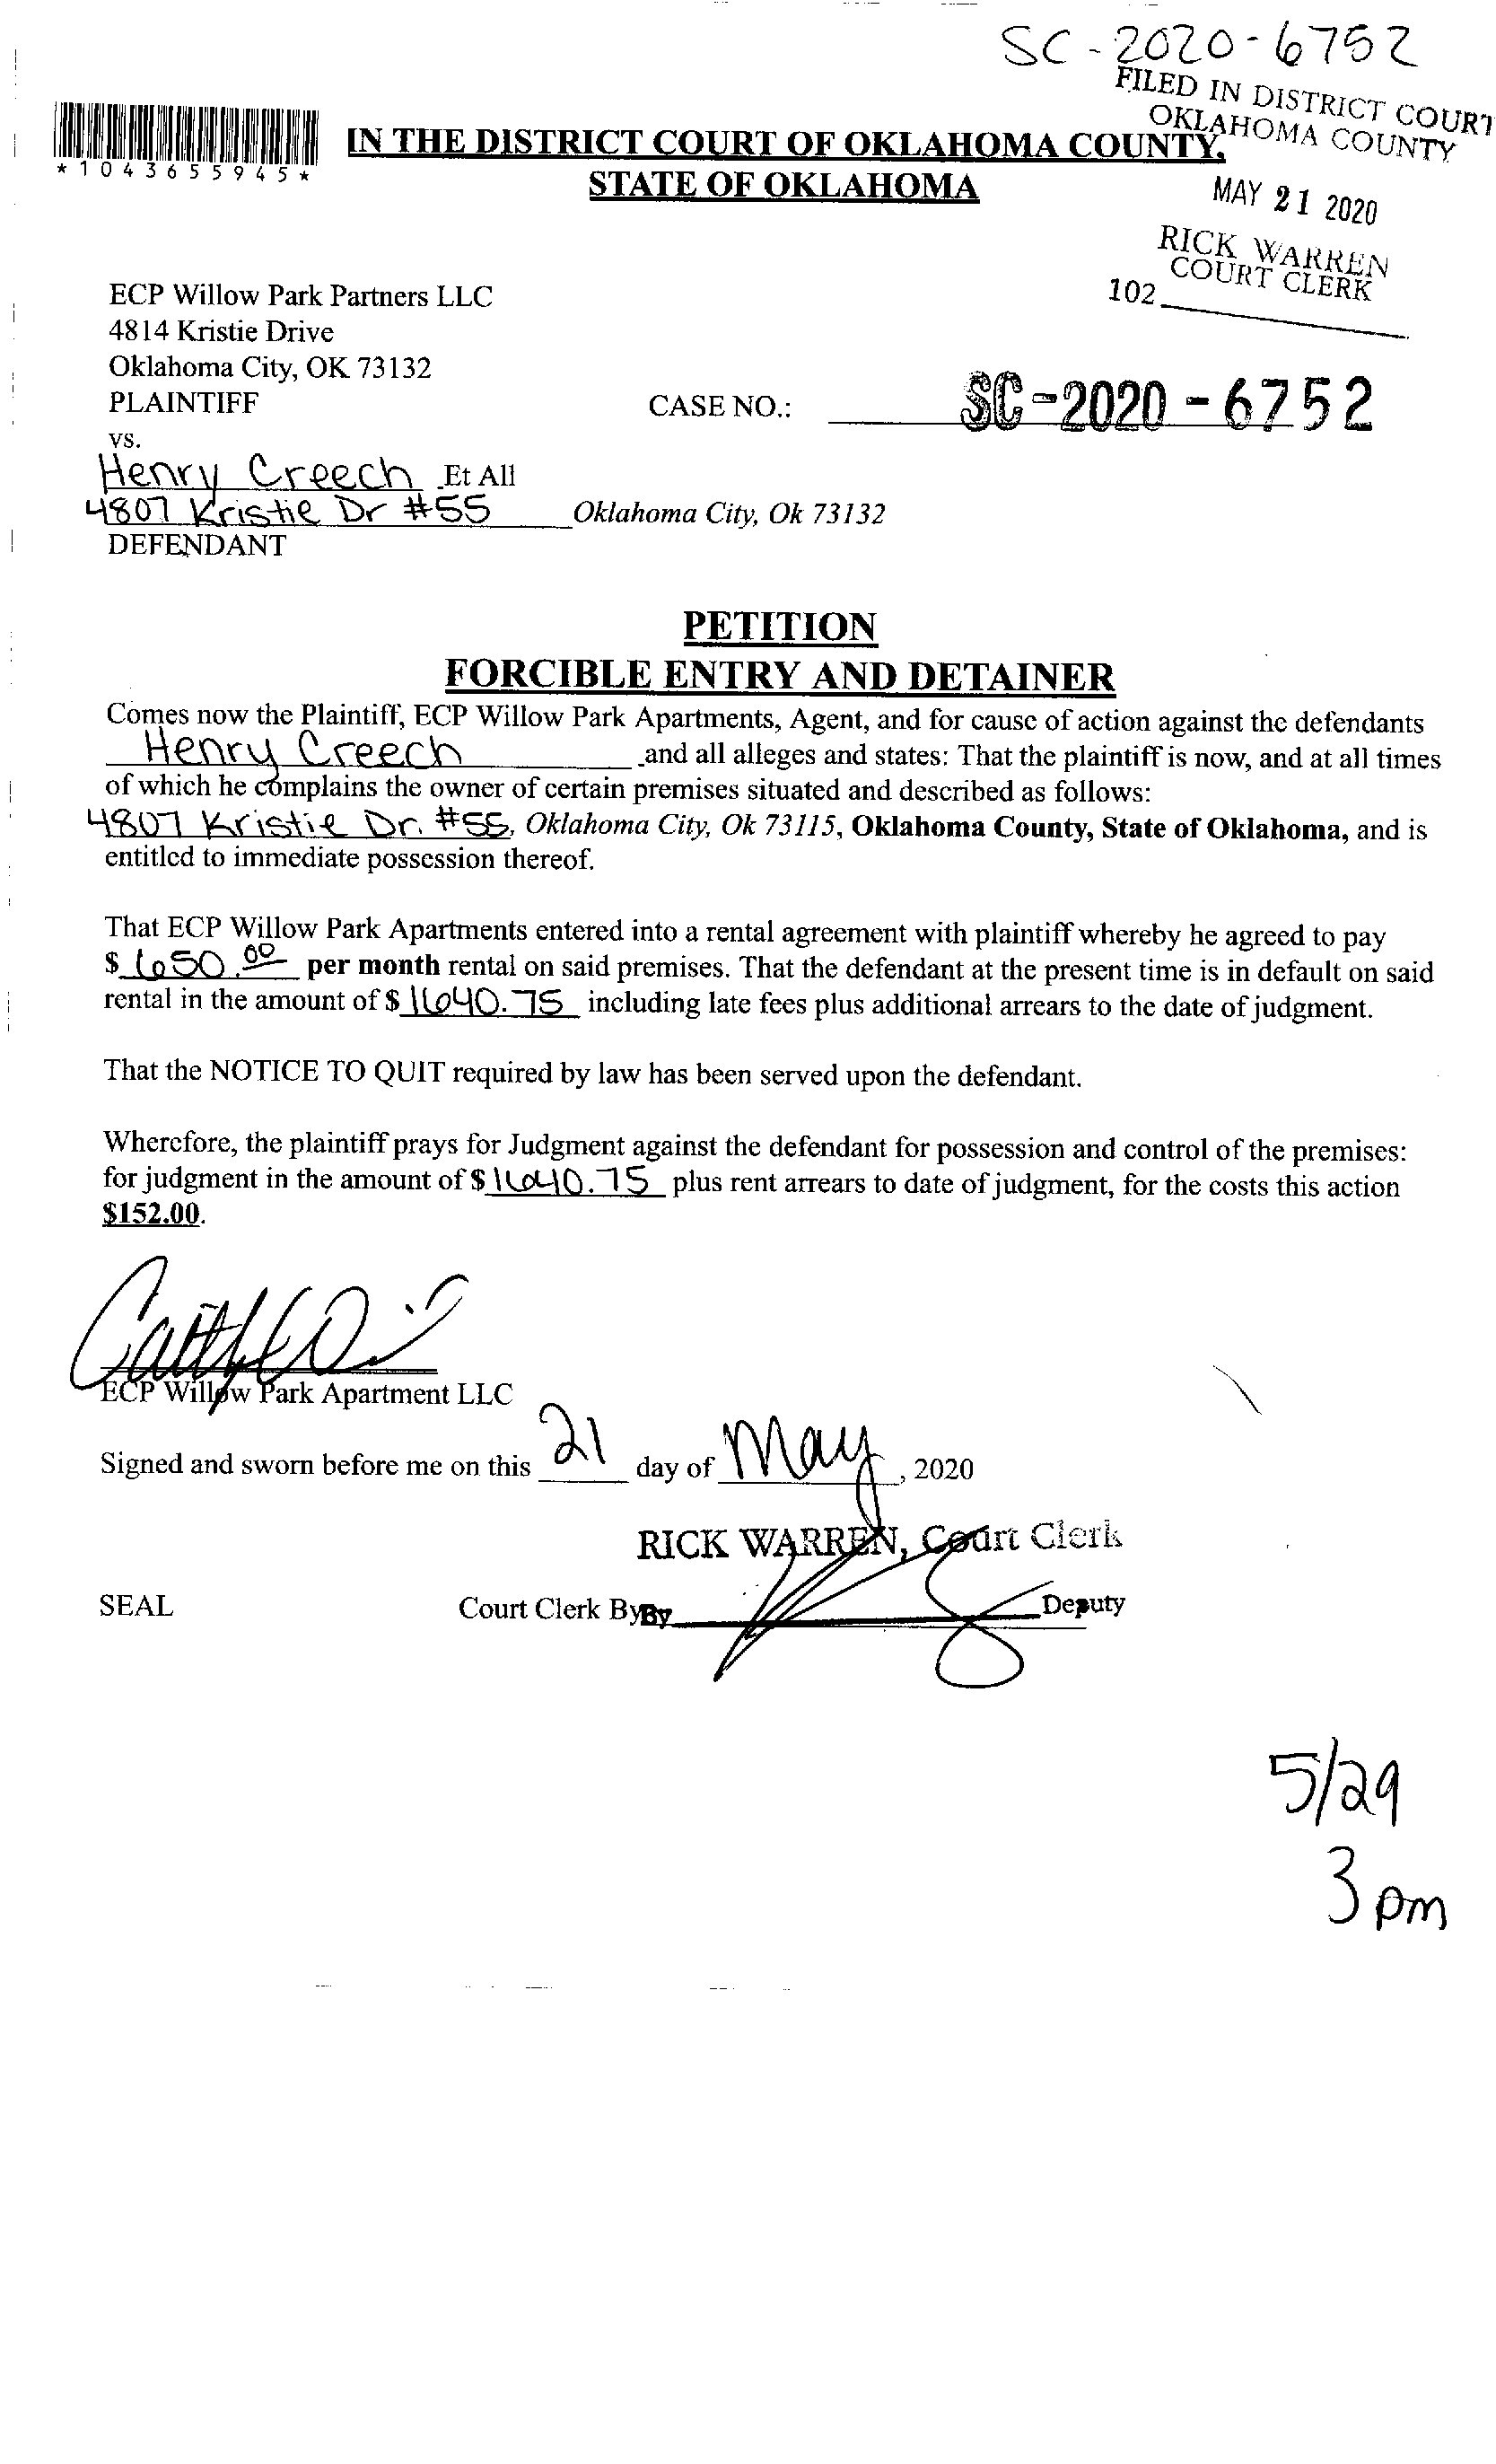 SC-2020-6752
FILED IN DISTRICT COURT
OKLAHOMA COUNTY
MAY 21 2020
RICK WARREN
COURT CLERK
102
*1043655945*
IN THE DISTRICT COURT OF OKLAHOMA COUNTY,
STATE OF OKLAHOMA
ECP Willow Park Partners LLC
4814 Kristie Drive
Oklahoma City, OK 73132
PLAINTIFF
CASE NO.: SC-2020-6752
vs.
Henry Creech Et All
4807 Kristie Dr #55 Oklahoma City, Ok 73132
DEFENDANT
PETITION
FORCIBLE ENTRY AND DETAINER
Comes now the Plaintiff, ECP Willow Park Apartments, Agent, and for cause of action against the defendants
Henry Creech and all alleges and states: That the plaintiff is now, and at all times
of which he complains the owner of certain premises situated and described as follows:
4807 Kristie Dr. #55, Oklahoma City, Ok 73115, Oklahoma County, State of Oklahoma, and is
entitled to immediate possession thereof.
That ECP Willow Park Apartments entered into a rental agreement with plaintiff whereby he agreed to pay
$ 650.00 per month rental on said premises. That the defendant at the present time is in default on said
rental in the amount of $ 1640.75 including late fees plus additional arrears to the date of judgment.
That the NOTICE TO QUIT required by law has been served upon the defendant.
Wherefore, the plaintiff prays for Judgment against the defendant for possession and control of the premises:
for judgment in the amount of $ 1640.75 plus rent arrears to date of judgment, for the costs this action
$152.00.
ECP Willow Park Apartment LLC
Signed and sworn before me on this 21 day of May, 2020
RICK WARREN, Court Clerk
SEAL Court Clerk By By Deputy
5/29
3 pm